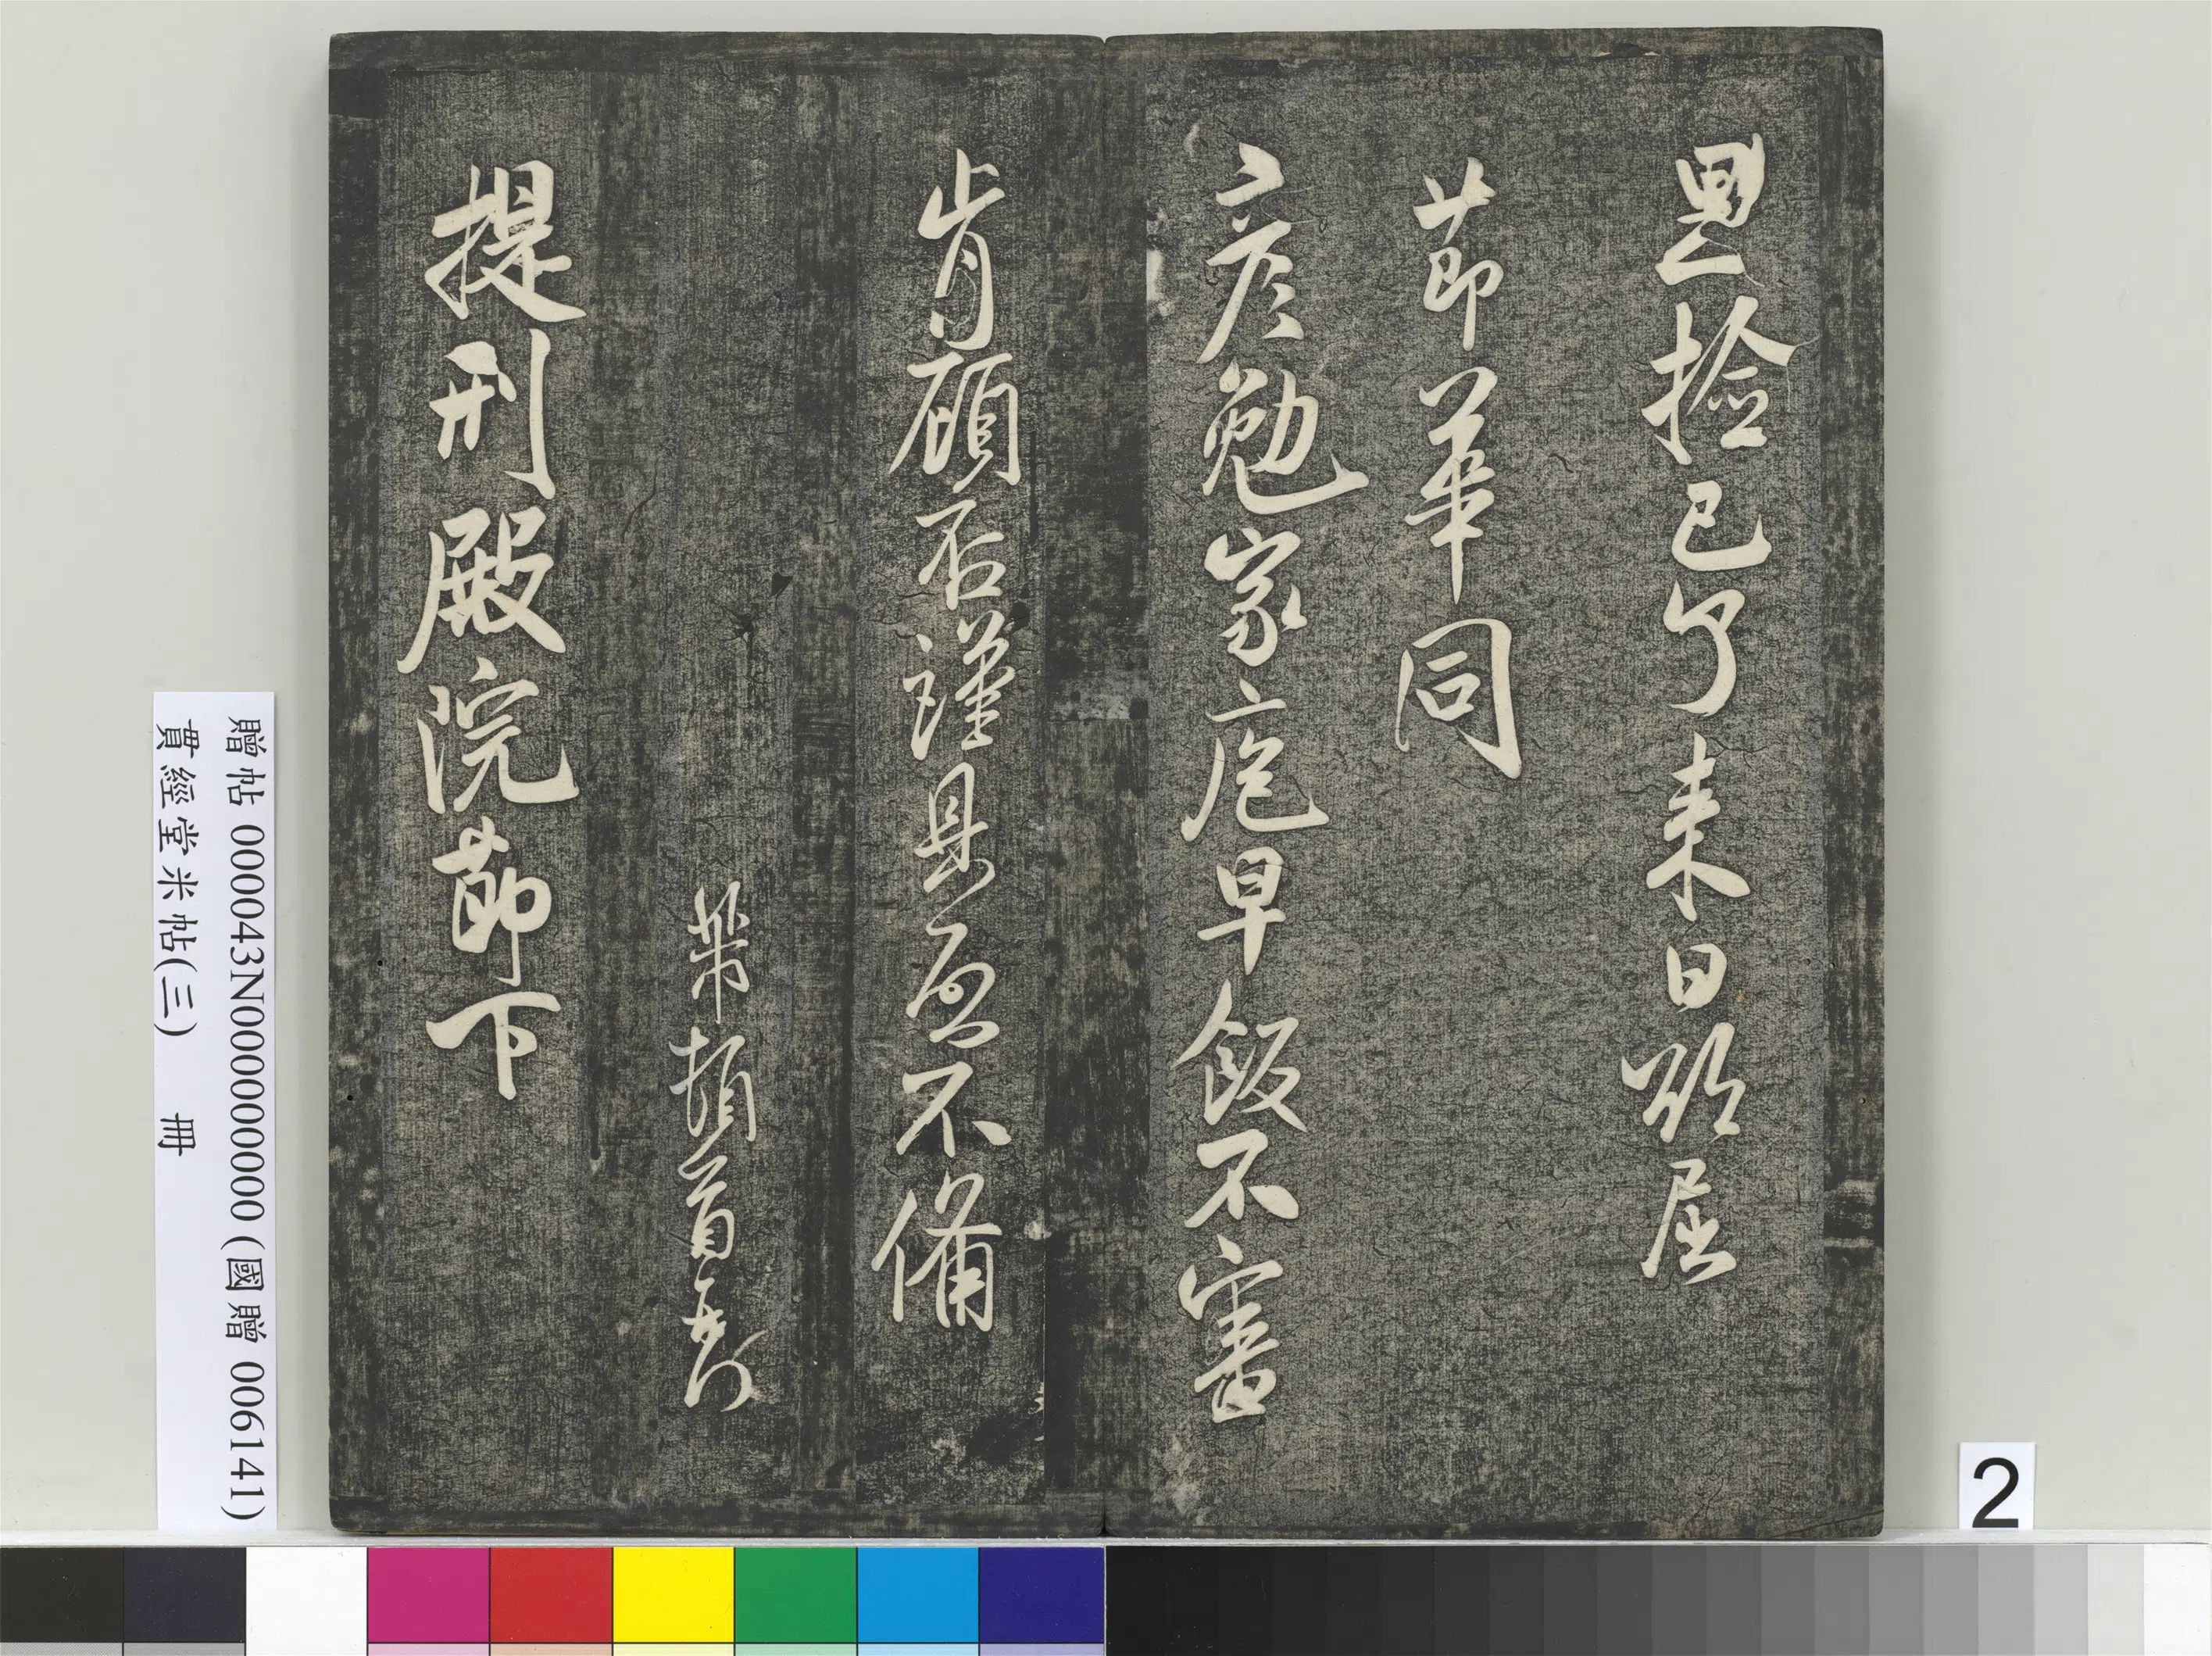 思捡已了来日欲屈
節華同
彦勉家庖早飯不審
肯顧否謹具啟不備
芾頓首再拜
提刑殿院節下
贈帖 000043N000000000 (國贈 006141)
貫經堂米帖(三) 冊
2